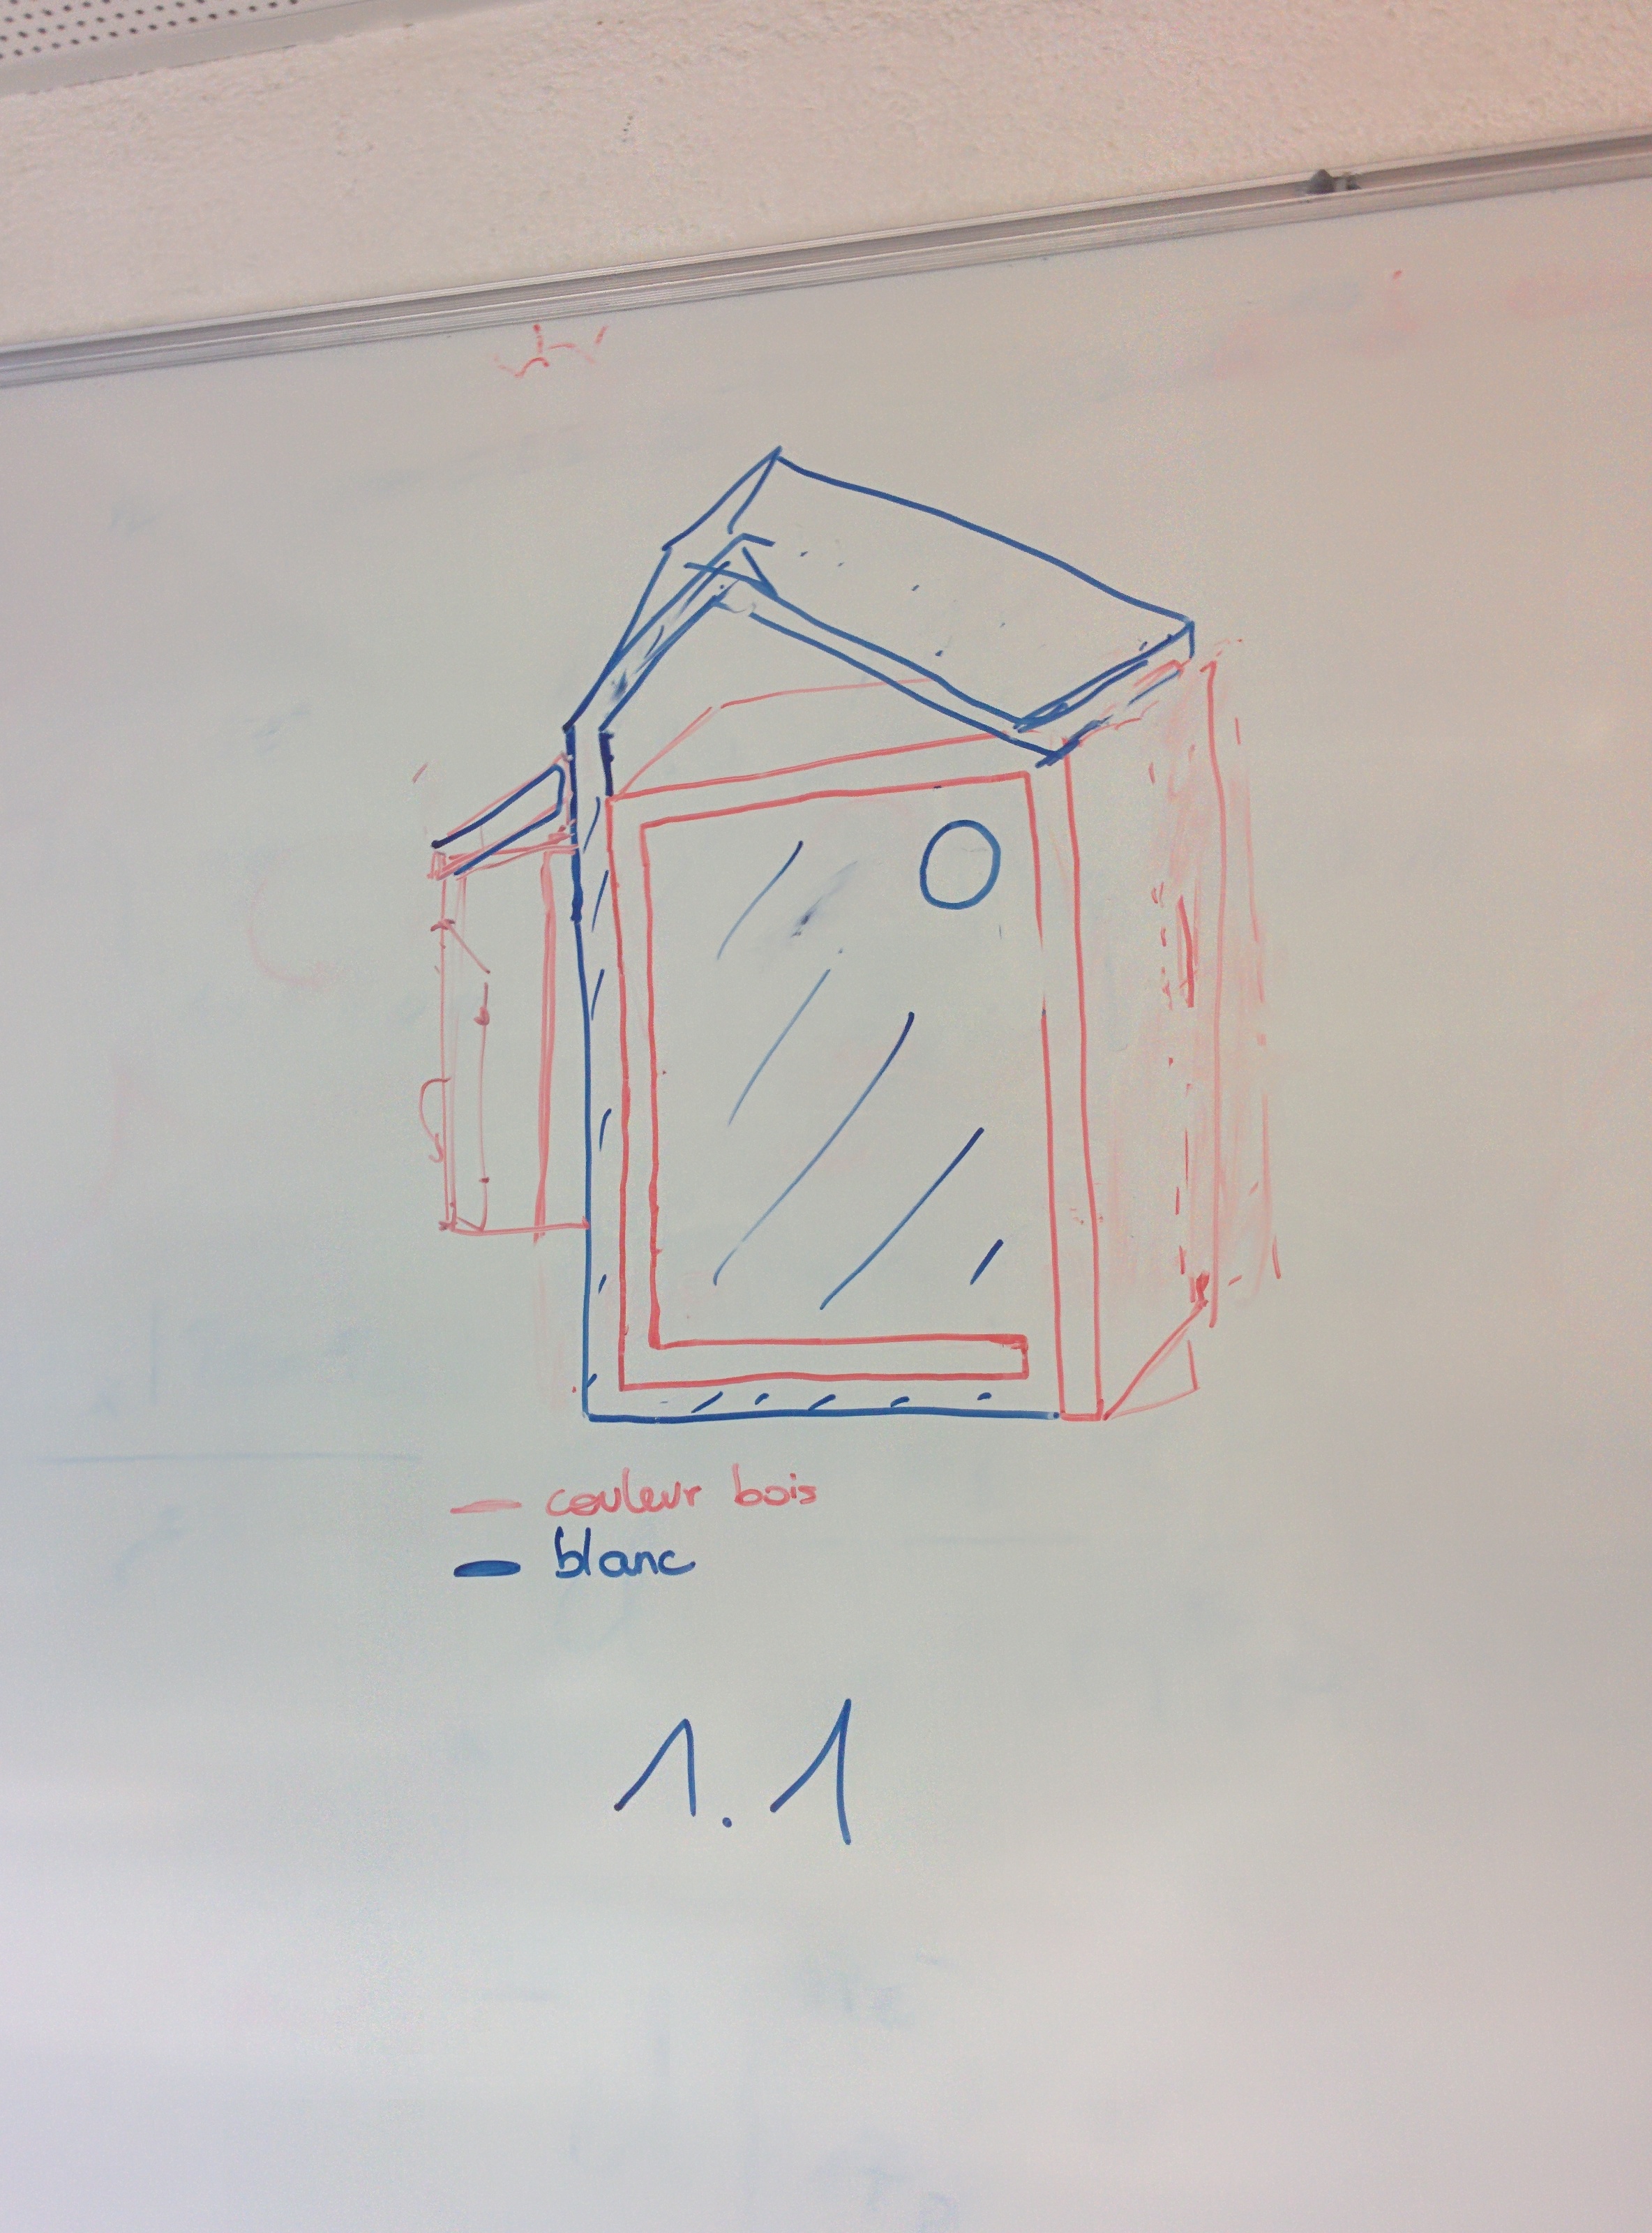 couleur bois
blanc
1.1